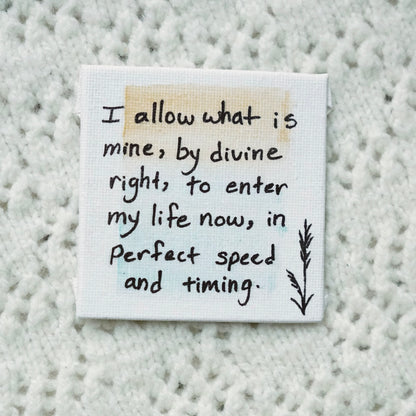 I allow what is
mine, by divine
right, to enter
my life now, in
perfect speed
and timing.